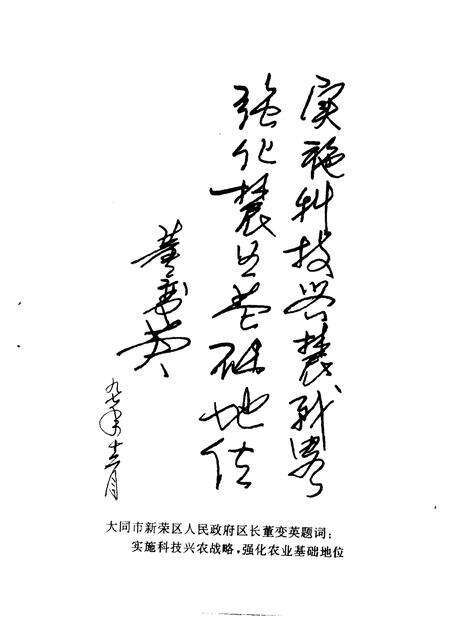 实施科技兴农战略
强化农业基础地位
董变英
九七年十二月
大同市新荣区人民政府区长董变英题词：
实施科技兴农战略，强化农业基础地位